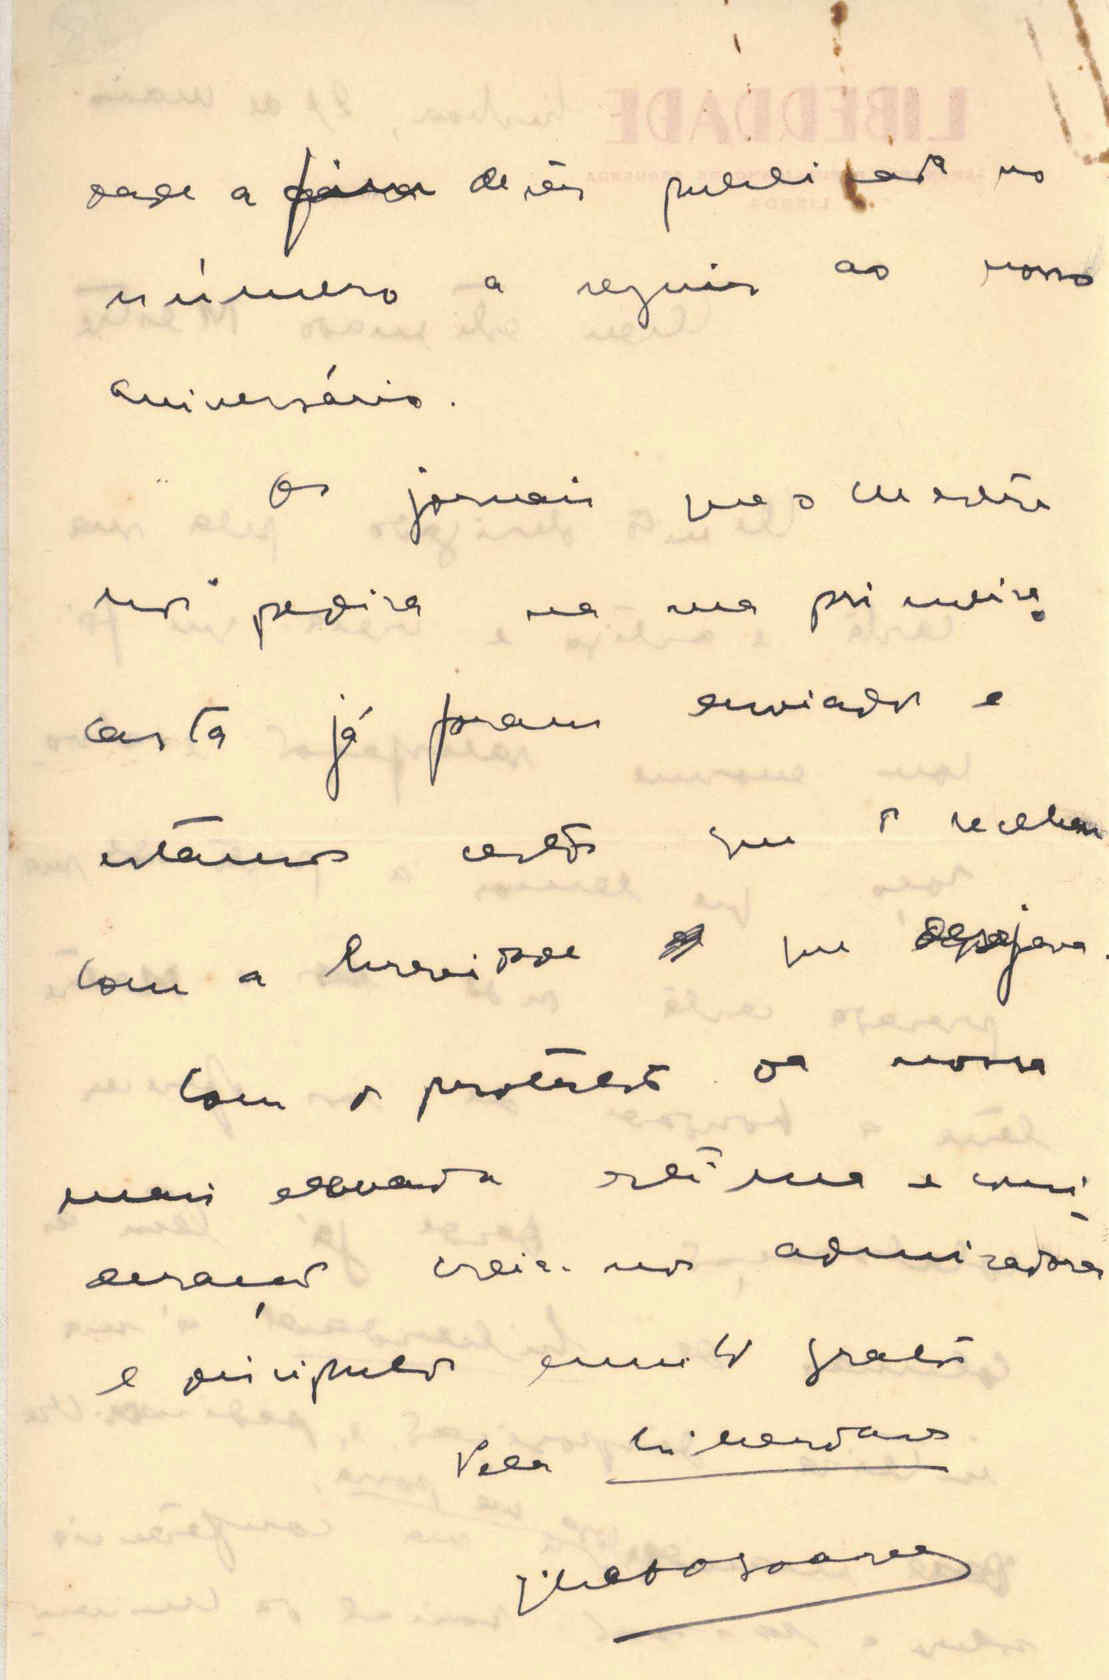 dade a fim de ser publicada no
número a seguir ao nosso
aniversário.
Os jornais que o mestre
nos pedira na sua primeira
carta já foram enviados e
estamos certos que os receberam
com a brevidade que desejava.
Com o protesto da nossa
mais elevada estima e consi-
deração creia-nos admiradores
e discípulos muito gratos
Pela Liberdade